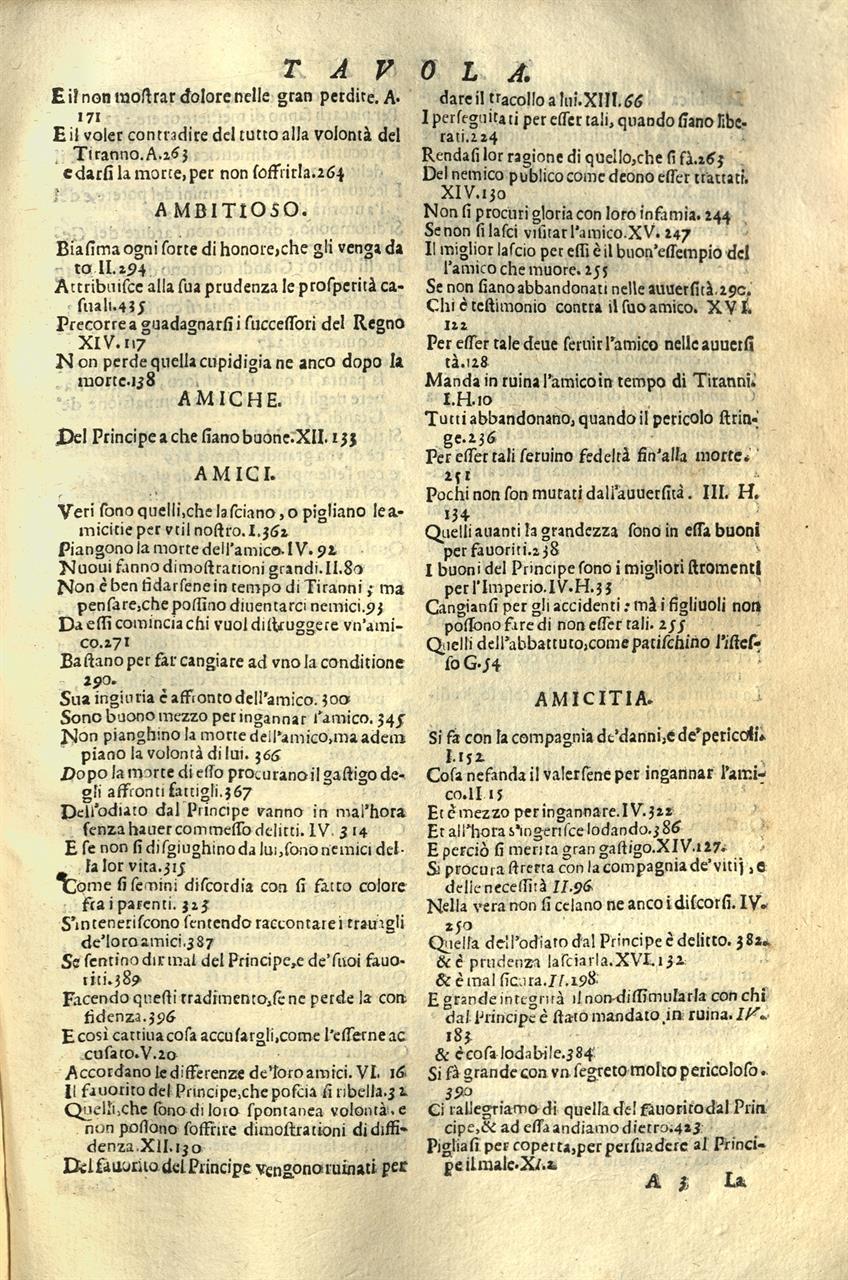 TAVOLA.
E il non mostrar dolore nelle gran perdite. A.
171
E il voler contradire del tutto alla volontà del
Tiranno. A.263
e darsi la morte, per non soffrirla.264
AMBITIOSO.
Biasima ogni sorte di honore, che gli venga da
to II.294
Attribuisce alla sua prudenza le prosperità ca-
suali.435
Precorre a guadagnarsi i successori del Regno
XIV. 117
Non perde quella cupidigia ne anco dopo la
morte.138
AMICHE.
Del Principe a che siano buone. XII. 133
AMICI.
Veri sono quelli, che lasciano, o pigliano le a-
micitie per vtil nostro. I.362
Piangono la morte dell'amico. IV. 92
Nuoui fanno dimostrationi grandi. II.80
Non è ben fidarsene in tempo di Tiranni; ma
pensare, che possino diuentarci nemici.93
Da essi comincia chi vuol distruggere vn'ami-
co.271
Bastano per far cangiare ad vno la conditione
290.
Sua ingiuria è affronto dell'amico. 300
Sono buono mezzo per ingannar l'amico. 345
Non pianghino la morte dell'amico, ma adem
piano la volontà di lui. 366
Dopo la morte di esso procurano il gastigo de-
gli affronti fattigli.367
Dell'odiato dal Principe vanno in mal'hora
senza hauer commesso delitti. IV. 314
E se non si disgiughino da lui, sono nemici del-
la lor vita.315
Come si semini discordia con si fatto colore
fra i parenti. 323
S'inteneriscono sentendo raccontare i trauagli
de'loro amici.387
Se sentino dir mal del Principe, e de'suoi fauo-
riti.389
Facendo questi tradimento, se ne perde la con
fidenza.396
E così cattiua cosa accusargli, come l'esserne ac
cusato. V.20
Accordano le differenze de'loro amici. VI. 16
Il fauorito del Principe, che poscia si ribella.32
Quelli, che sono di loro spontanea volontà, e
non possono soffrire dimostrationi di diffi-
denza. XII.130
Del fauorito del Principe vengono ruinati per
dare il tracollo a lui. XIII.66
I perseguitati per esser tali, quando siano libe-
rati.224
Rendasi lor ragione di quello, che si fà.263
Del nemico publico come deono esser trattati.
XIV.130
Non si procuri gloria con loro infamia. 244
Se non si lasci visitar l'amico. XV. 247
Il miglior lascio per essi è il buon'essempio del
l'amico che muore. 255
Se non siano abbandonati nelle auuersità.290.
Chi è testimonio contra il suo amico. XVI.
122
Per esser tale deue seruir l'amico nelle auuersi
tà.128
Manda in ruina l'amico in tempo di Tiranni.
I.H.10
Tutti abbandonano, quando il pericolo strin-
ge.236
Per esser tali seruino fedeltà fin'alla morte.
251
Pochi non son mutati dall'auuersità. III. H.
134
Quelli auanti la grandezza sono in essa buoni
per fauoriti.238
I buoni del Principe sono i migliori stromenti
per l'Imperio. IV.H.33
Cangiansi per gli accidenti: mà i figliuoli non
possono fare di non esser tali. 255
Quelli dell'abbattuto, come patischino l'istes-
so G.54
AMICITIA.
Si fà con la compagnia de'danni, e de'pericoli.
I.152
Cosa nefanda il valersene per ingannar l'ami-
co. II 15
Et è mezzo per ingannare. IV.322
Et all'hora s'ingerisce lodando.386
E perciò si merita gran gastigo. XIV.127.
Si procura stretta con la compagnia de'vitij, e
delle necessità II.96
Nella vera non si celano ne anco i discorsi. IV.
250
Quella dell'odiato dal Principe è delitto. 382.
& è prudenza lasciarla. XVI.132
& è mal sicura. II.198
E grande integrità il non dissimularla con chi
dal Principe è stato mandato in ruina. IV.
183
& è cosa lodabile.384
Si fà grande con vn segreto molto pericoloso.
390
Ci rallegriamo di quella del fauorito dal Prin
cipe, & ad essa andiamo dietro.423
Pigliasi per coperta, per persuadere al Princi-
pe il male. XI.2
A 3 La